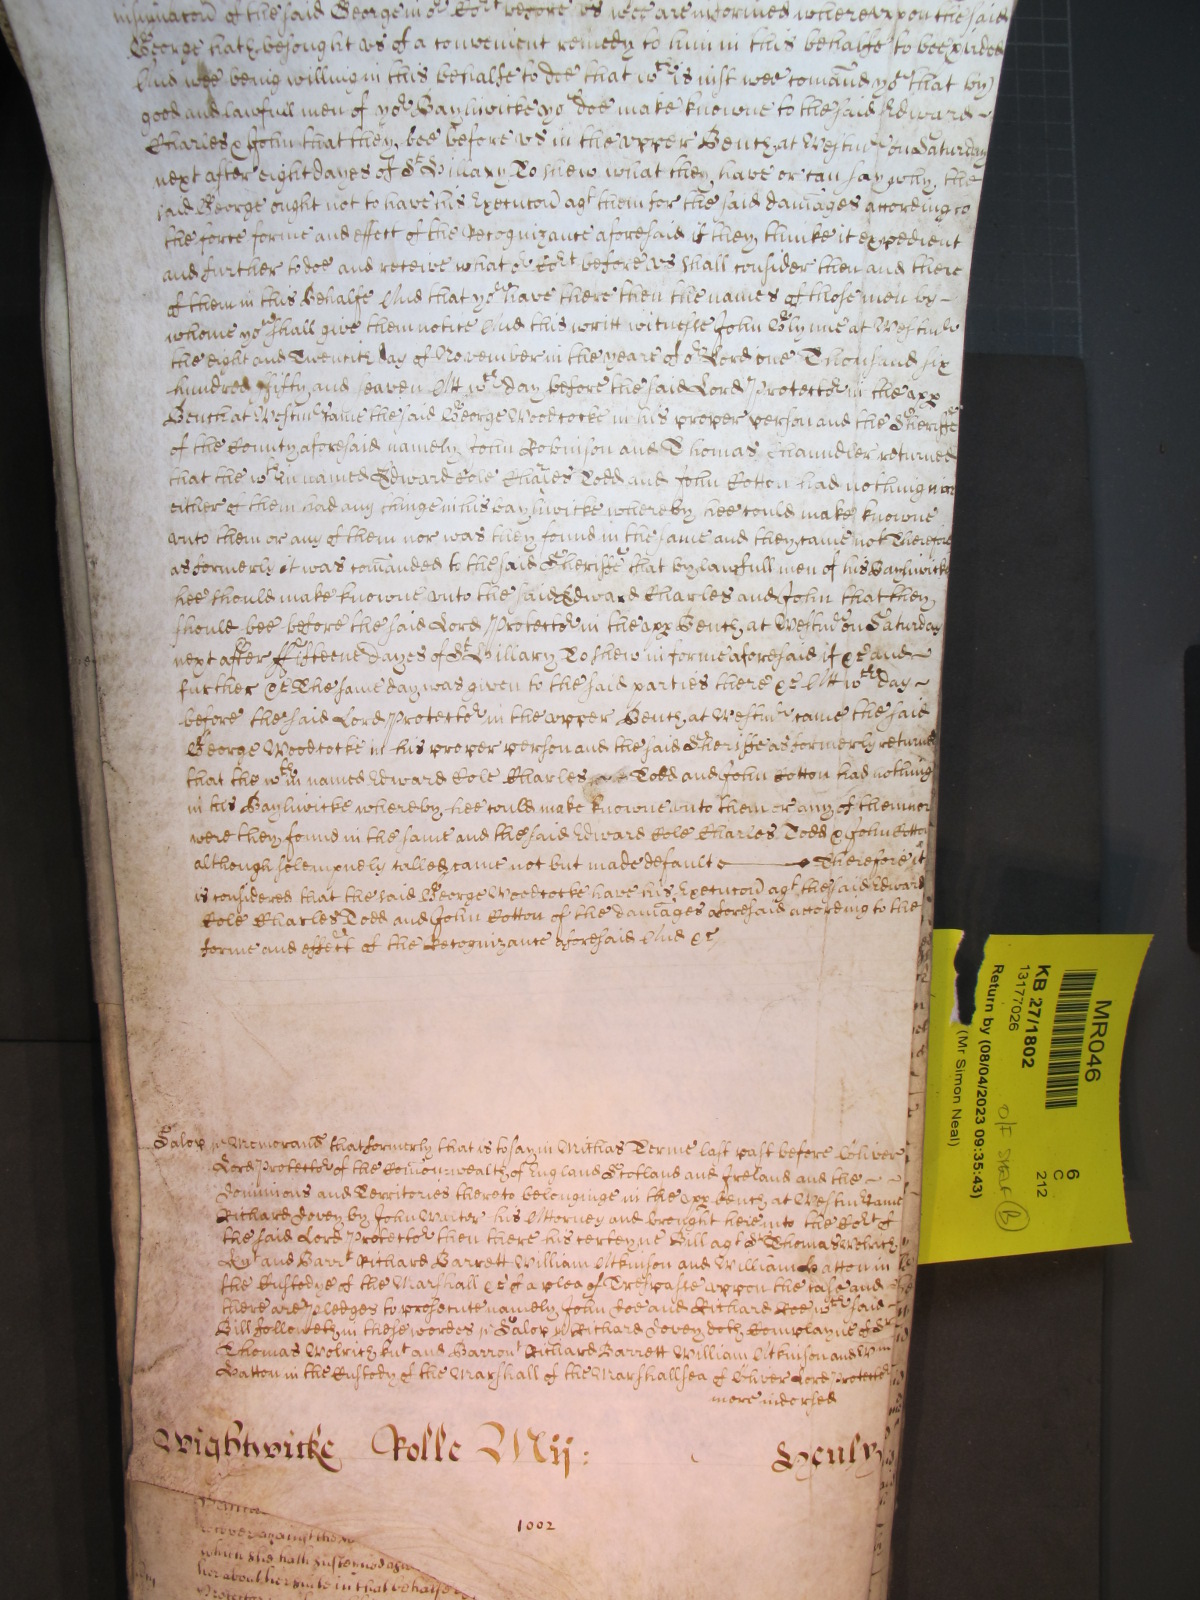 of the said George in or Cort before us wee are informed whereuppon the said
George hath besought us of a convenient remedy to him in this behalfe to bee
And wee being willing in this behalfe to doe that wch is just wee comand yow that by
good and lawfull men of yor Bayliwicke yow doe make knowne to the said Edward
Charles & John that they bee before us in the upper Bench at Westmr on Saturday
next after eight dayes of St Hillary To shew what they have or can say why the
said George ought not to have his Execucon agt them for the said damages according to
the force forme and effect of the Recognizance aforesaid if they thinke it expedient
and further to doe and receive what or Cort before us shall consider then and there
of them in this behalfe And that yow have there then the names of those men by
whome yow shall give them notice And this writt witnesse John Glynne at Westmr
the eight and Twentith day of November in the yeare of or Lord one Thousand six
hundred fifty and seaven Att wch day before the said Lord Protector in the upp
Bench at Westmr came the said George Woodcocke in his proper person and the Sheriffe
of the County aforesaid namely John Robinson and Thomas Chaundler returned
that the wthin named Edward Cole Charles Todd and John Cotton had nothing nor
either of them had any thinge in his bayliwicke whereby hee could make knowne
unto them or any of them nor was they found in the same and they came not Therefore
as formerly it was comanded to the said Sheriffe that by lawfull men of his Bayliwicke
hee should make knowne unto the said Edward Charles and John that they
should bee before the said Lord Protector in the upp Bench at Westmr on Saturday
next after fifteene dayes of St Hillary To shew in forme aforesaid if &c and
further &c The same day was given to the said parties there &c Att wch day
before the said Lord Protector in the upper Bench at Westmr came the said
George Woodcocke in his proper person and the said Sheriffe as formerly returned
that the wthin named Edward Cole Charles Todd and John Cotton had nothing
in his Bayliwicke whereby hee could make knowne unto them or any of them nor
were they found in the same and the said Edward Cole Charles Todd & John Cotton
although solempnely called came not but made default Therefore it
is considered that the said George Woodcocke have his Execucon agt the said Edward
Cole Charles Todd and John Cotton of the damages aforesaid according to the
forme and effect of the Recognizance aforesaid And &c
Salop ss Memorand that formerly that is to say in Michas Terme last past before Oliver
Lord Protector of the Comonwealth of England Scotland and Ireland and the
Dominions and Territories thereto belonginge in the upp bench at Westm Came
Richard by John his Attorney and brought here into the Cort of
the said Lord Protector then there his certeyne Bill agt Sr Thomas Wolrich
Knt and Barrt Richard Barrett William Atkinson and William Hatton in
the Custodye of the Marshall &c of a plea of Trespasse uppon the case and
there are pledges to prosecute namely John Doe and Richard Roe wch said
Bill followeth in these wordes ss Salop ss Richard doth Complayne of Sr
Thomas Wolrich knt and Barront Richard Barrett William Atkinson and Wm
Hatton in the Custody of the Marshall of the Marshallsea of Oliver Lord Protector
more indorsed
Wightwicke Rolle Mij: Henly
1002
recover against the
which she hath susteyned as
her about her suite in that behalfe
Protector
MR046
KB 27/1802
13177026
Return by (08/04/2023 09:35:43)
(Mr Simon Neal)
6
C
212
O/F Shelf (B)